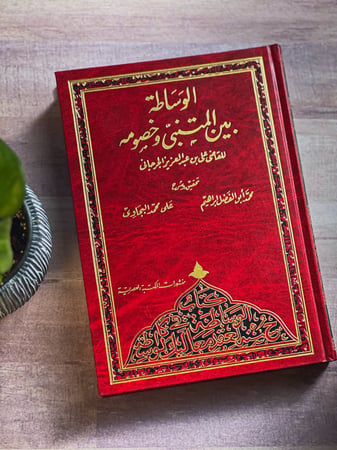 الوساطة
بين المتنبي وخصومه
للقاضي علي بن عبد العزيز الجرجاني
تحقيق وشرح
محمد أبو الفضل إبراهيم
علي محمد البجاوي
منشورات المكتبة العصرية